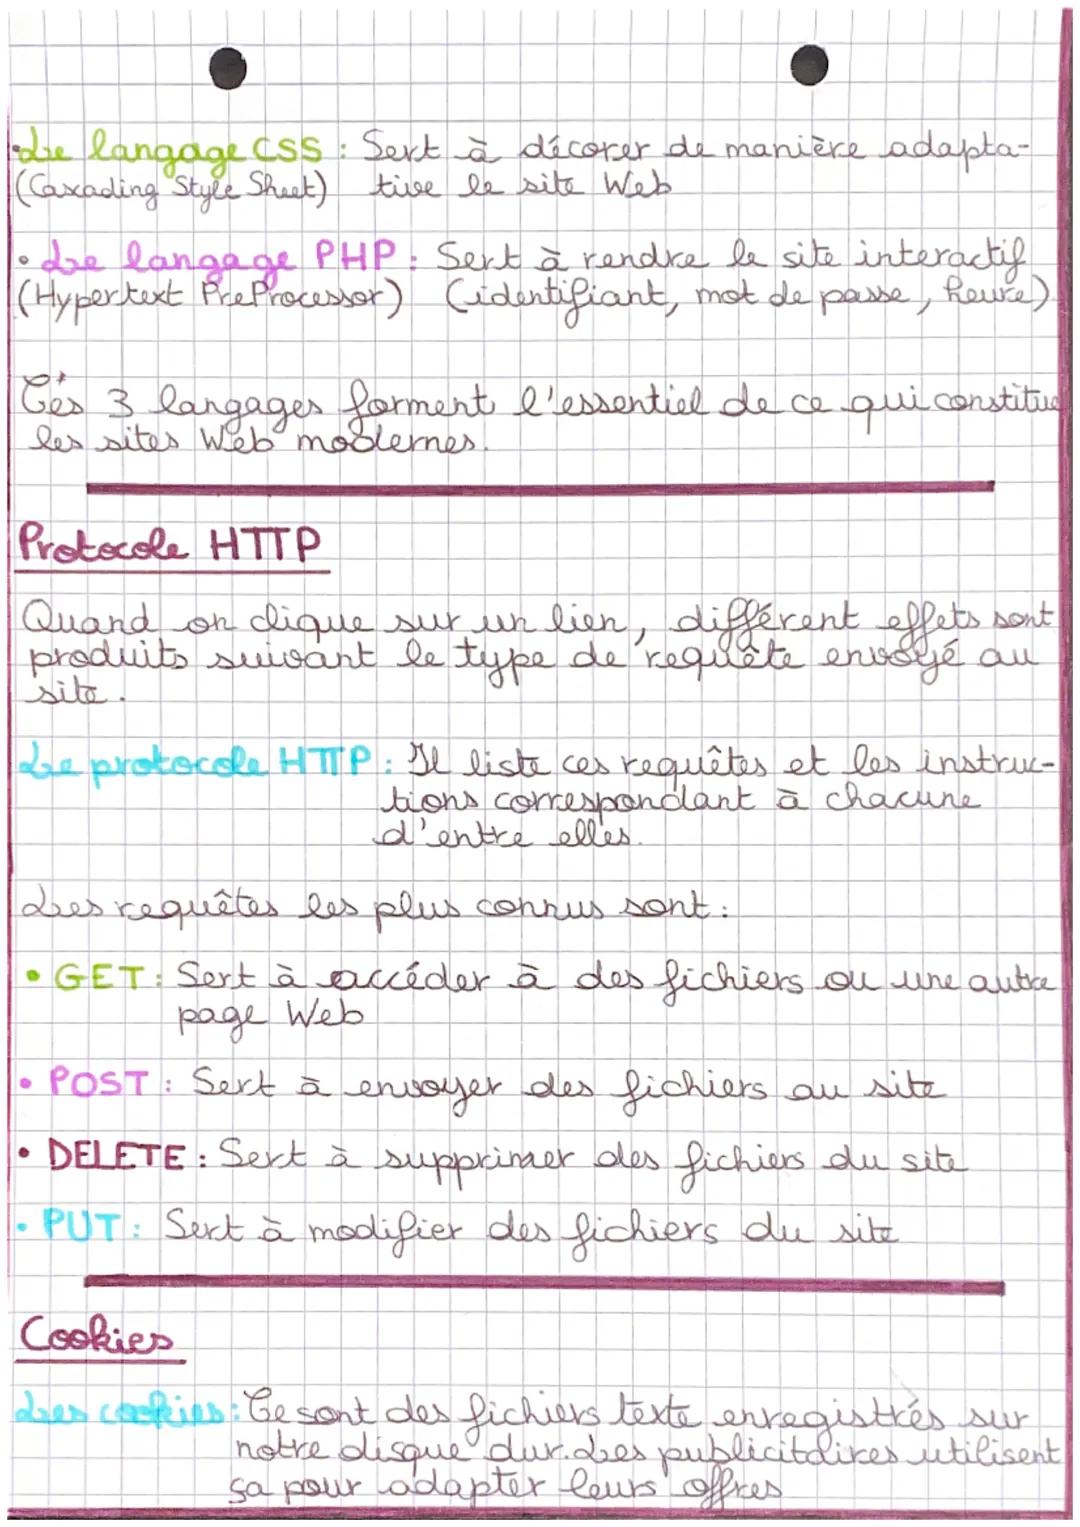 • Le langage CSS : Sert à décorer de manière adapta-
(Caxading Style Sheet) tive le site Web
• Le langage PHP : Sert à rendre le site interactif
(Hypertext PreProcessor) (identifiant, mot de passe, heure)
Cés 3 langages forment l'essentiel de ce qui constitue
les sites Web modernes.
Protocole HTTP
Quand on clique sur un lien, différent effets sont
produits suivant le type de requête envoyé au
site.
Le protocole HTTP : Il liste ces requêtes et les instruc-
tions correspondant à chacune
d'entre elles.
Les requêtes les plus connus sont :
• GET : Sert à accéder à des fichiers ou une autre
page Web
• POST : Sert à envoyer des fichiers au site
• DELETE : Sert à supprimer des fichiers du site
• PUT : Sert à modifier des fichiers du site
Cookies
Les cookies : Ce sont des fichiers texte enregistrés sur
notre disque dur. Les publicitaires utilisent
sa pour adapter leurs offres